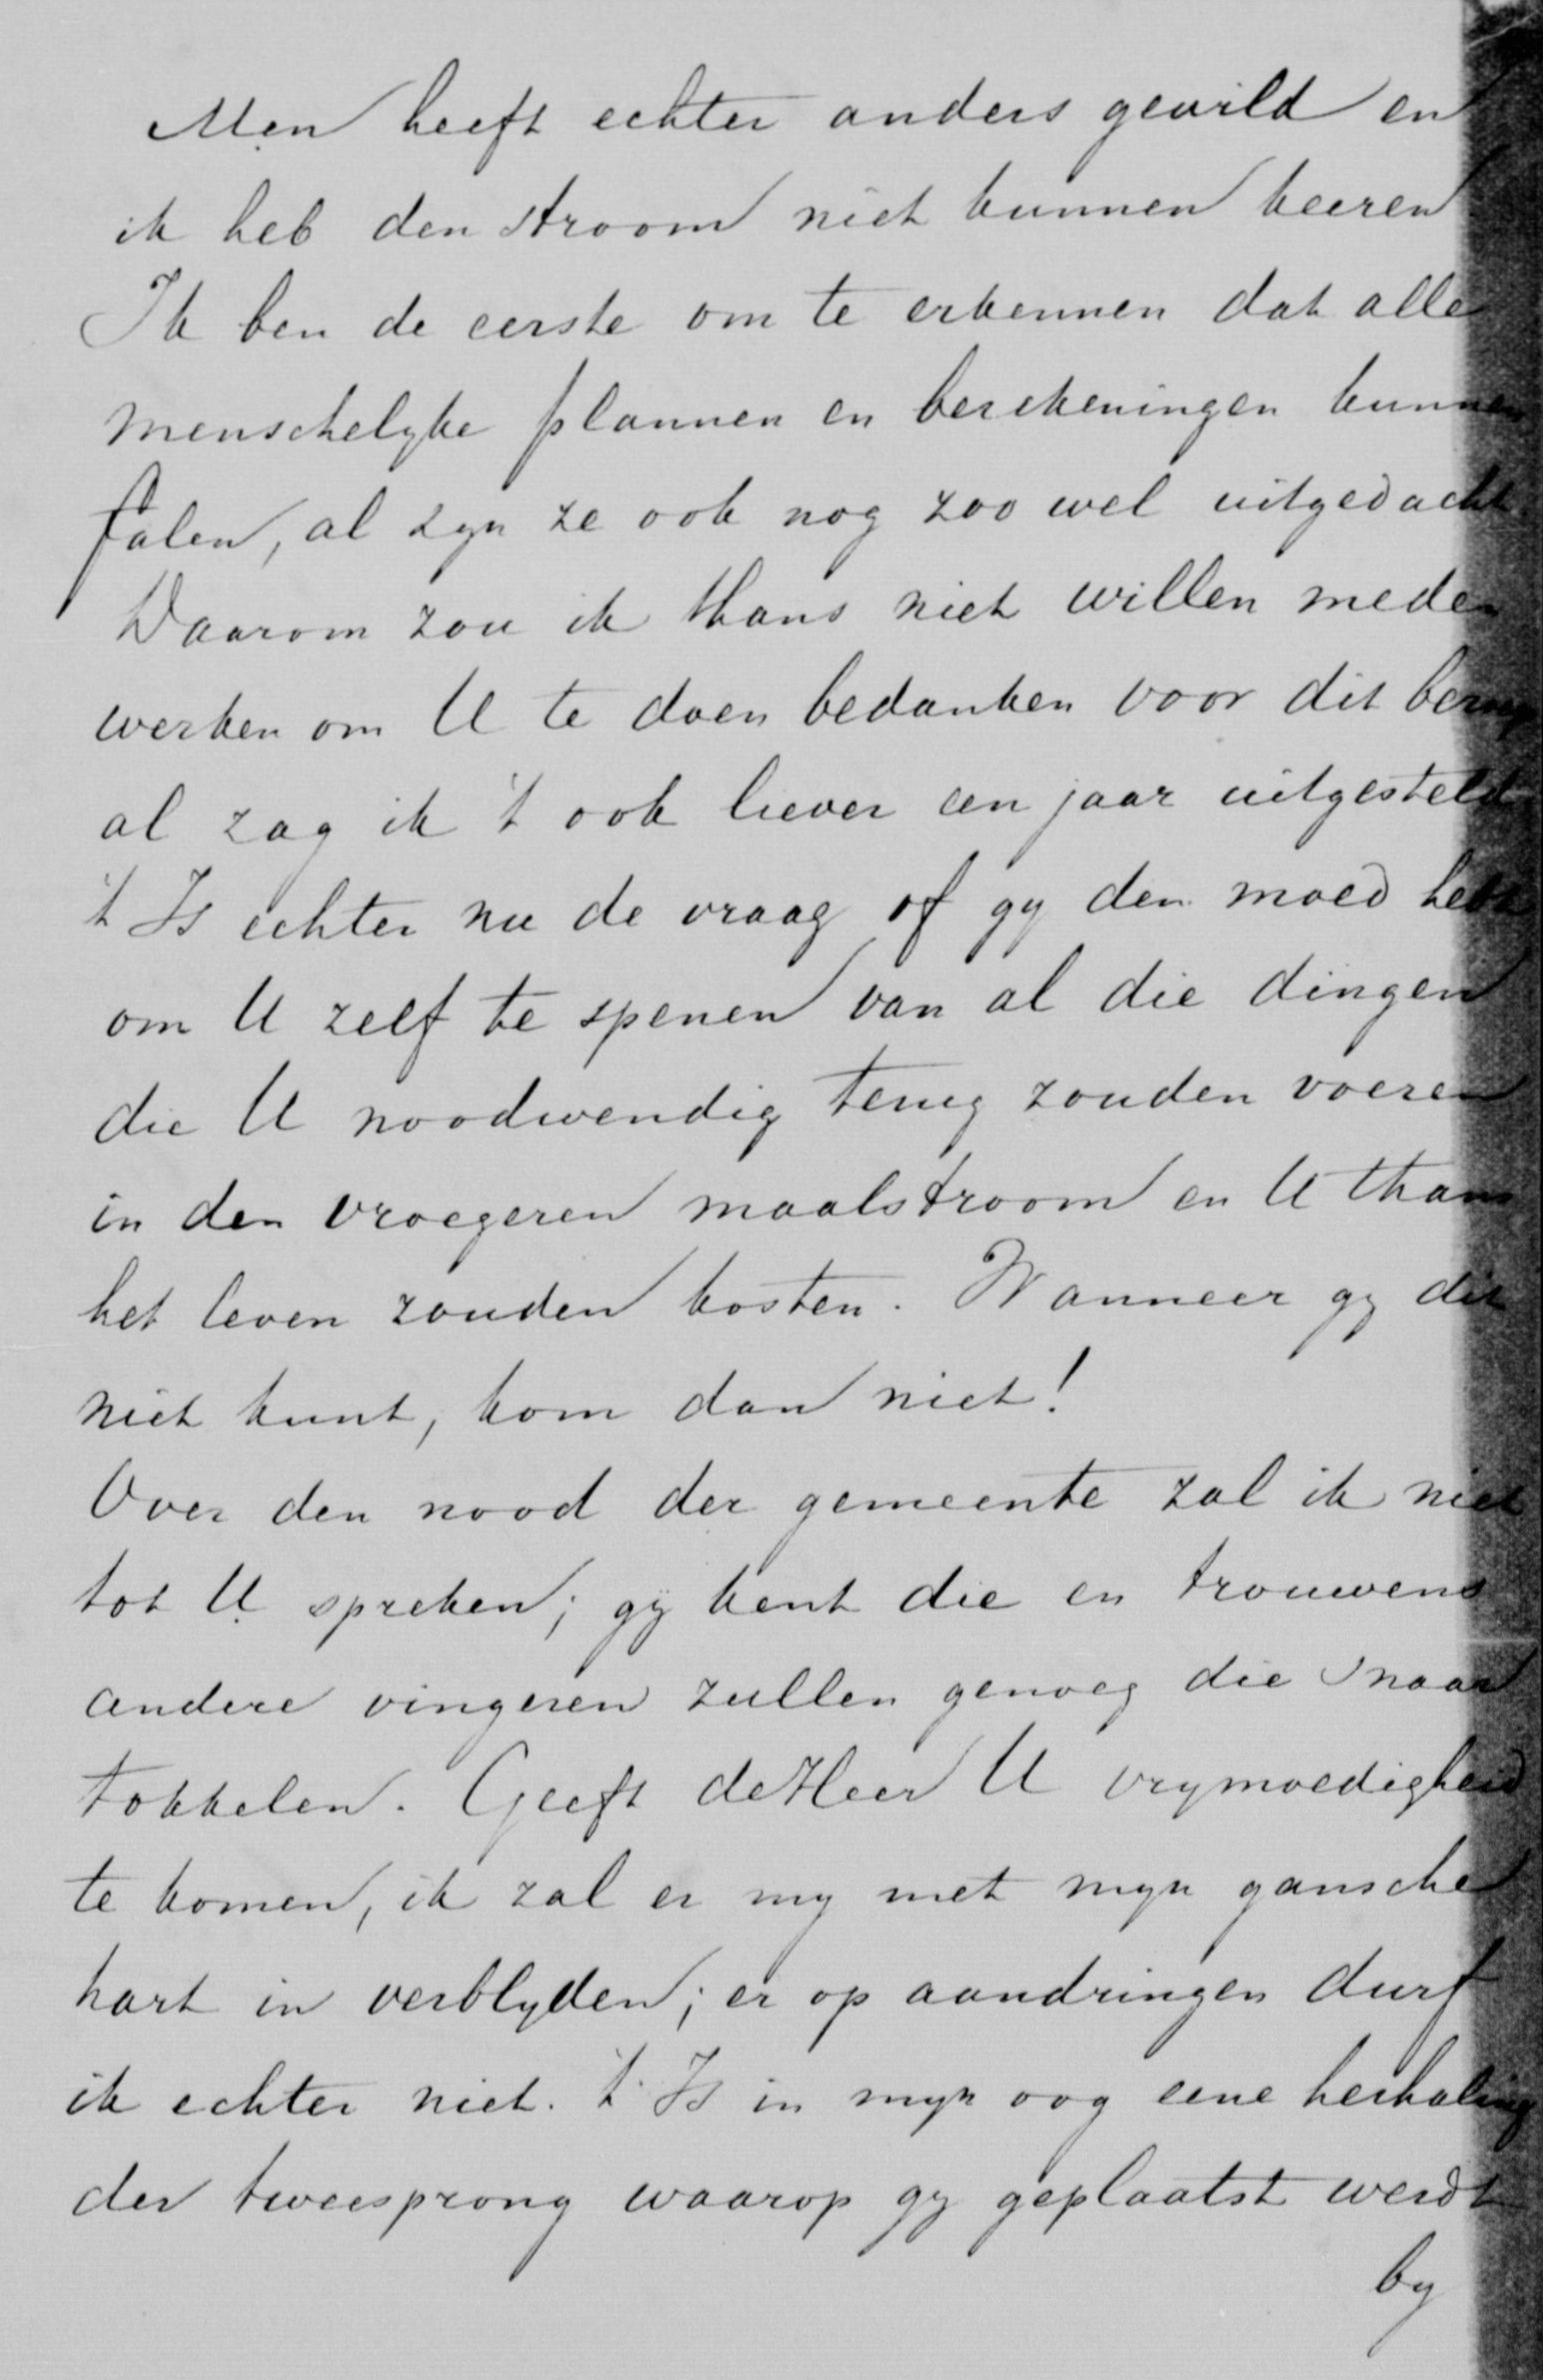 Men heeft echter anders gewild en
ik heb den stroom niet kunnen keeren
Ik ben de eerste om te erkennen dat alle
menschelyke plannen en berekeningen kunnen
falen, al zyn ze ook nog zoo wel uitgedacht.
Daarom zou ik thans niet willen mede-
werken om U te doen bedanken voor dit beroep
al zag ik 't ook liever een jaar uitgesteld
't Is echter nu de vraag of gy den moed hebt
om U zelf te spenen van al die dingen
die U noodwendig terug zouden voeren
in den vroegeren maalstroom en U thans
het leven zouden kosten. Wanneer gy dit
niet kunt, kom dan niet!
Over den nood der gemeente zal ik niet
tot U spreken; gÿ kent die en trouwens
andere vingeren zullen genoeg die snaar
tokkelen. Geeft de Heer U vrymoedigheid
te komen, ik zal er my met myn gansche
hart in verblyden; er op aandringen durf
ik echter niet. 't Is in myn oog eene herhaling
der tweesprong waarop gy geplaatst werdt
by